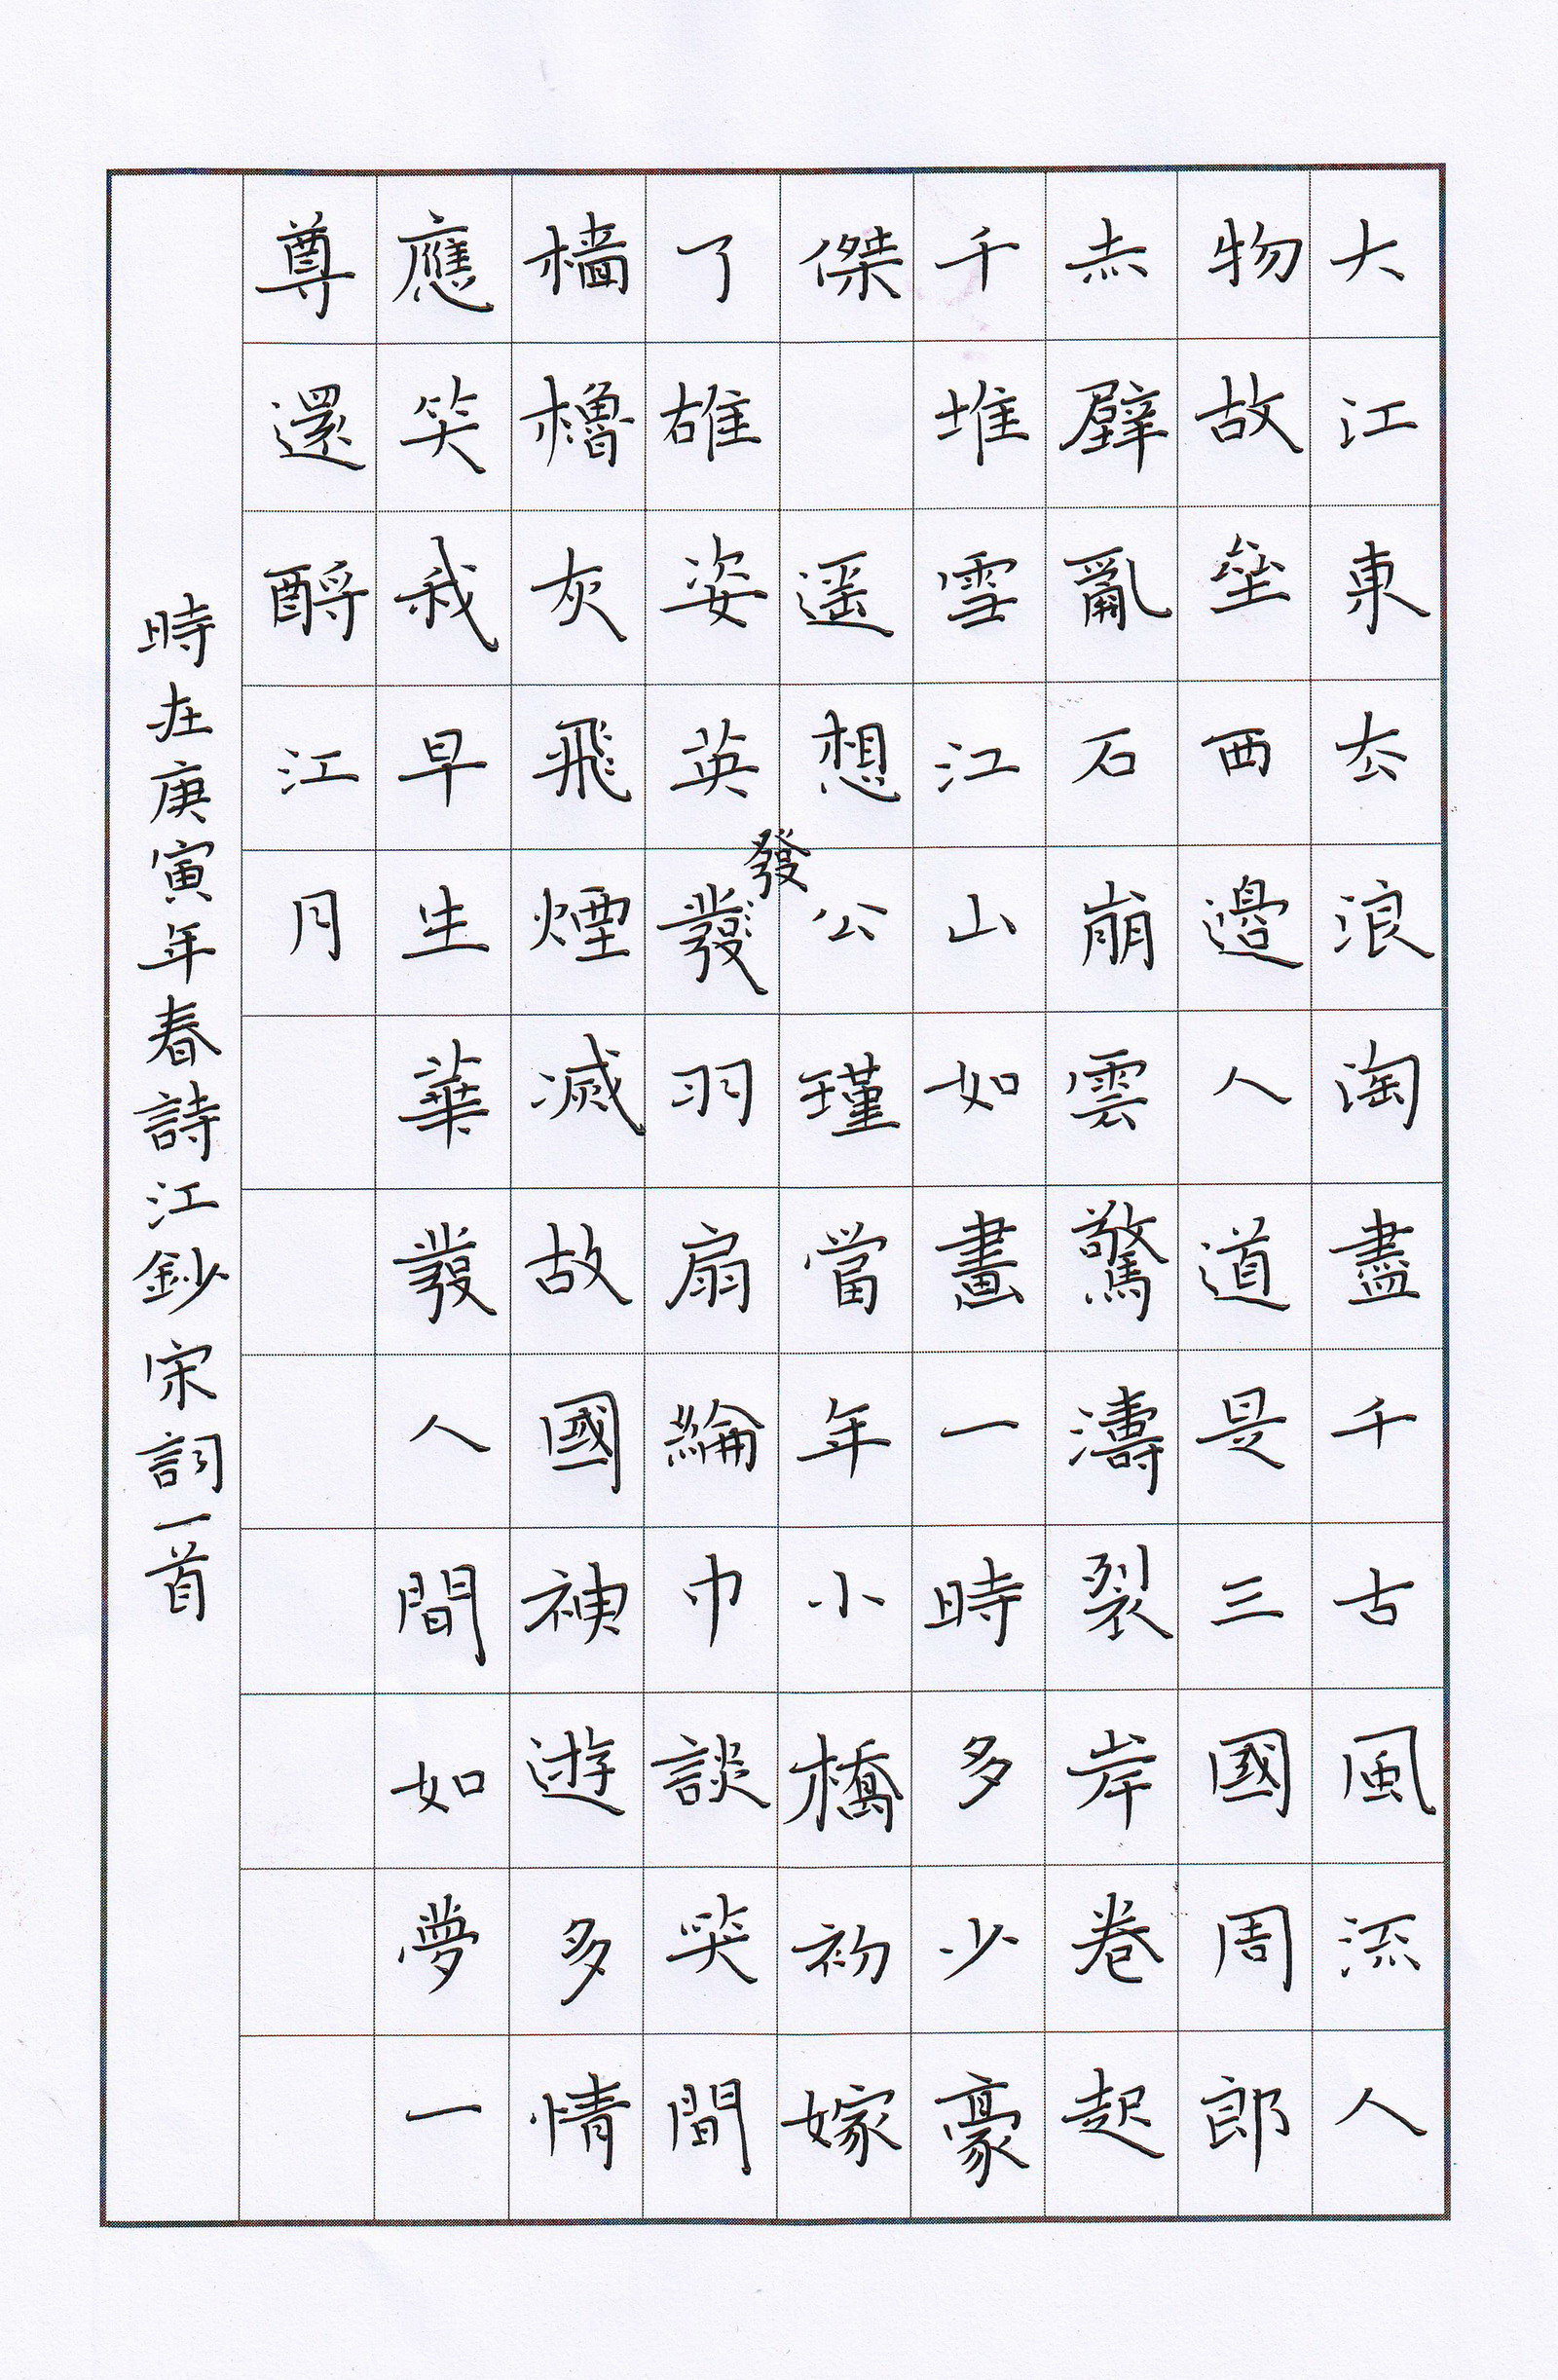 大江東去浪淘盡千古風流人
物故壘西邊人道是三國周郎
赤壁亂石崩雲驚濤裂岸卷起
千堆雪江山如畫一時多少豪
傑 遥想公瑾當年小橋初嫁
了雄姿英發羽扇綸巾談笑間
發
檣櫓灰飛煙滅故國神遊多情
應笑我早生華發人間如夢一
尊還酹江月
時在庚寅年春詩江鈔宋詞一首